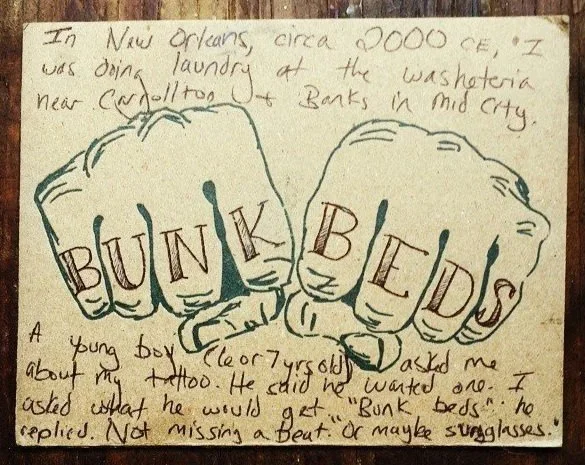 In New Orleans, circa 2000 CE, I
was doing laundry at the washeteria
near Carrollton + Banks in Mid City.
BUNK BEDS
A young boy (6 or 7 yrs old) asked me
about my tattoo. He said he wanted one. I
asked what he would get. "Bunk beds" he
replied. Not missing a beat. "Or maybe sunglasses."